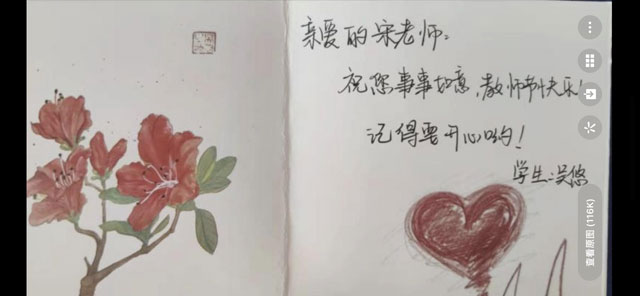 亲爱的宋老师:
祝您事事如意,教师节快乐!
记得要开心哟!
学生:吴悠
查看原图 (116K)